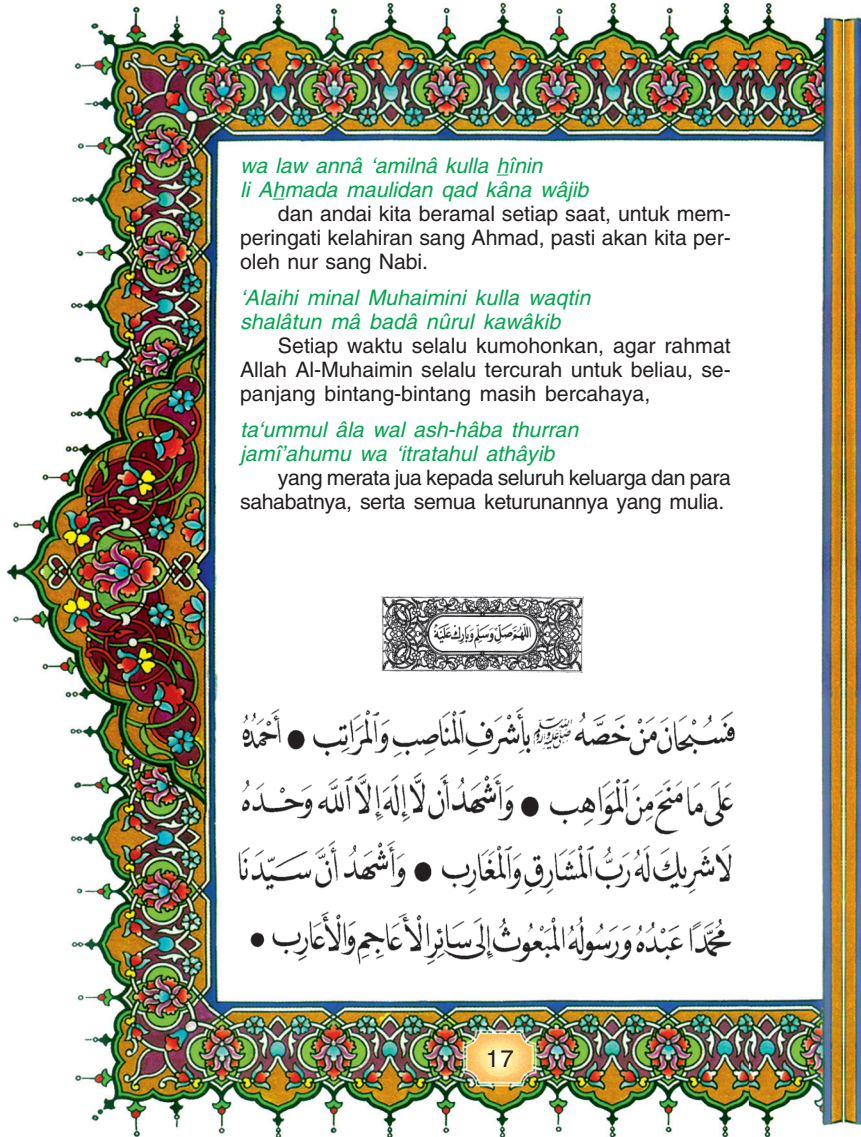 wa law annâ ‘amilnâ kulla hînin
li Ahmada maulidan qad kâna wâjib
dan andai kita beramal setiap saat, untuk mem-
peringati kelahiran sang Ahmad, pasti akan kita per-
oleh nur sang Nabi.
‘Alaihi minal Muhaimini kulla waqtin
shalâtun mâ badâ nûrul kawâkib
Setiap waktu selalu kumohonkan, agar rahmat
Allah Al-Muhaimin selalu tercurah untuk beliau, se-
panjang bintang-bintang masih bercahaya,
ta‘ummul âla wal ash-hâba thurran
jamî’ahumu wa ‘itratahul athâyib
yang merata jua kepada seluruh keluarga dan para
sahabatnya, serta semua keturunannya yang mulia.
اللّٰهُمَّ صَلِّ وَسَلِّمْ وَبَارِكْ عَلَيْهِ
فَسُبْحَانَ مَنْ خَصَّهُ ﷺ بِأَشْرَفِ الْمَنَاصِبِ وَالْمَرَاتِب ● أَحْمَدُهُ
عَلَى مَا مَنَحَ مِنَ الْمَوَاهِب ● وَأَشْهَدُ أَن لَّا إِلَهَ إِلَّا اللَّه وَحْدَهُ
لَا شَرِيكَ لَهُ رَبُّ الْمَشَارِقِ وَالْمَغَارِب ● وَأَشْهَدُ أَنَّ سَيِّدَنَا
مُحَمَّدًا عَبْدُهُ وَرَسُولُهُ الْمَبْعُوثُ إِلَى سَائِرِ الْأَعَاجِمِ وَالْأَعَارِب ●
17